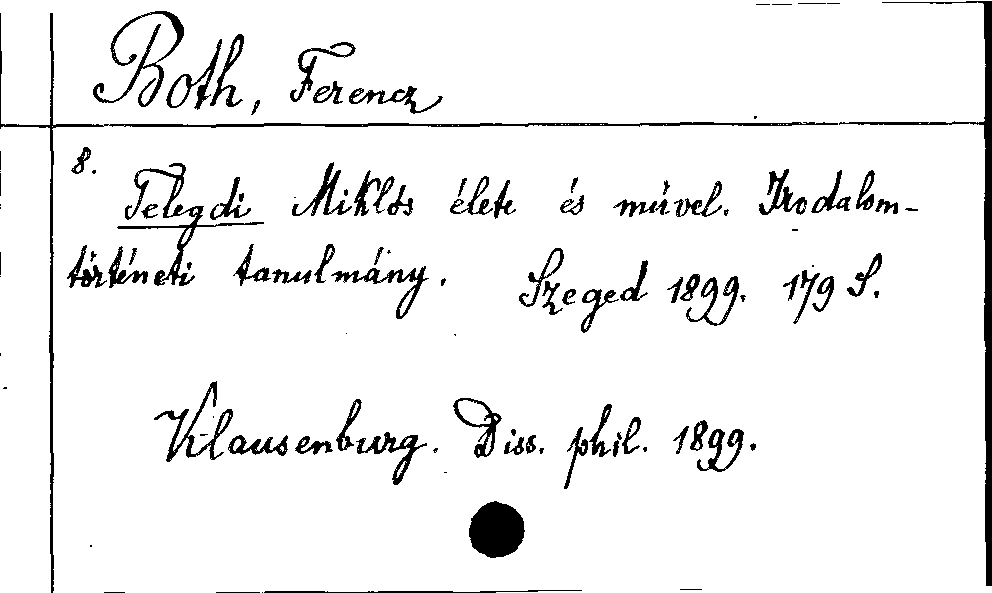 Both, Ferencz
8.
Telegdi Miklós élete és müvel. Irodalom-
történeti tanulmány. Szeged 1899. 179 S.
Klausenburg. Diss. phil. 1899.